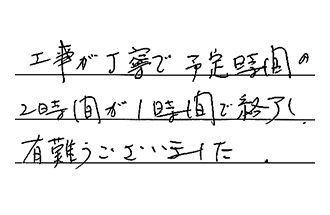 工事が丁寧で予定時間の
2時間が1時間で終了し
有難うございました.